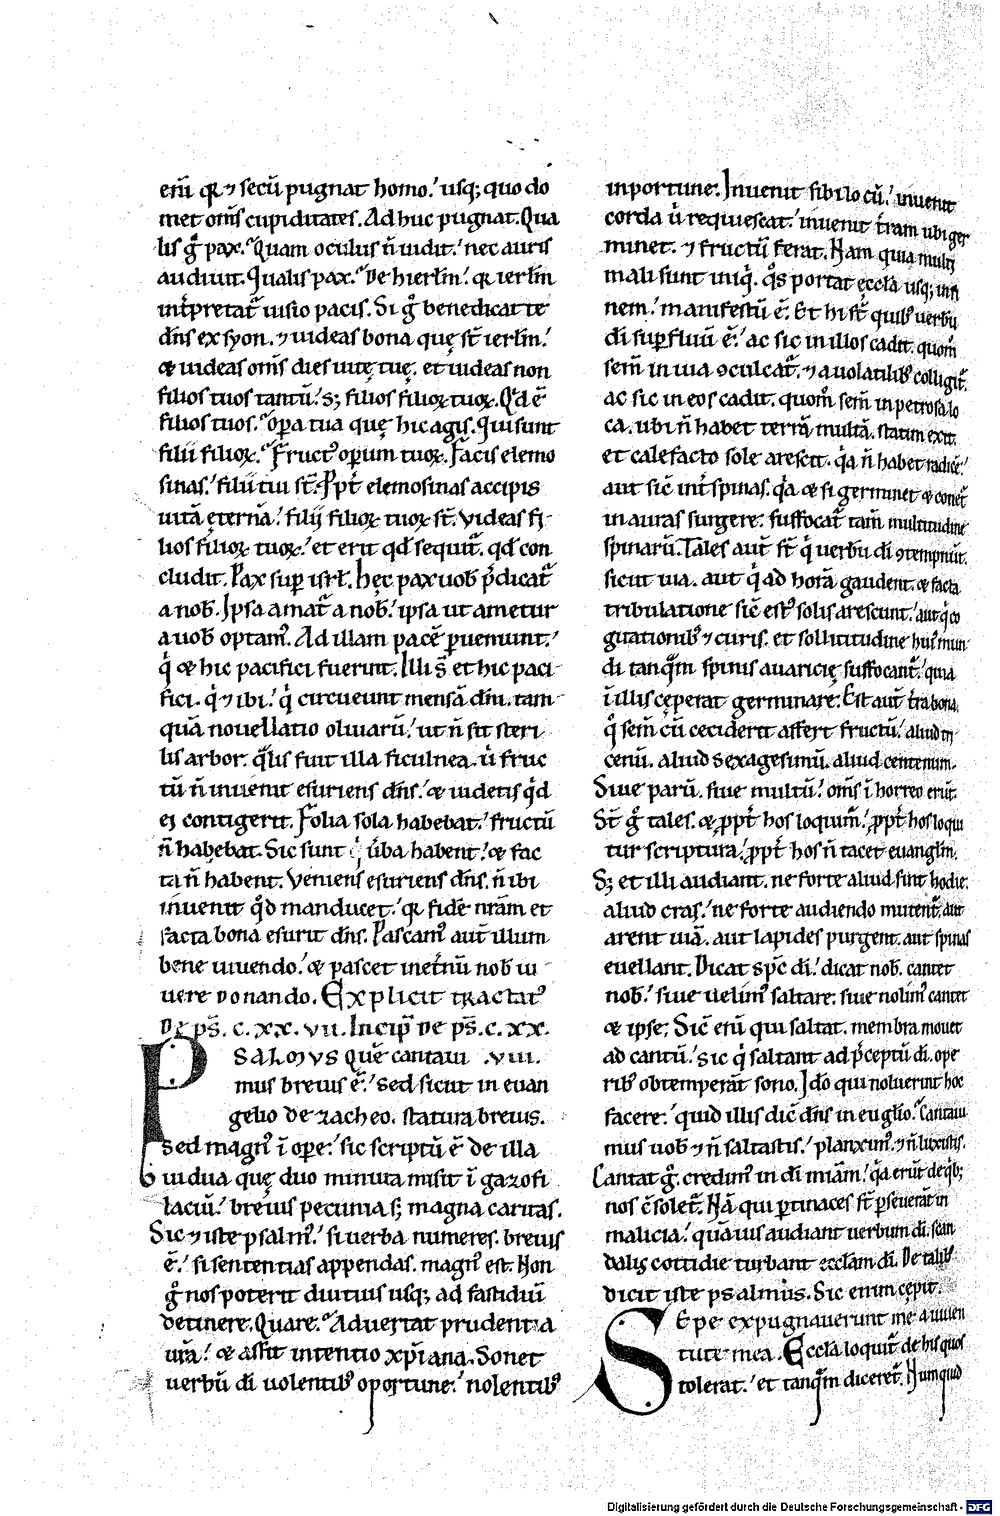 eni q̄ ⁊ secū pugnat homo.' usq; quo do
met om̄s cupiditates. Adhuc pugnat. Qua
lis g̊ pax. Quam oculus ñ uidit.' nec auris
audiuit. Qualis pax. De hierlm̄.' q̄ ierlm̄
int̄pretat̄ uisio pacis. Si g̊ benedicat te
dn̄s ex syon. ⁊ uideas bona quę st̄ ierlm̄.'
& uideas om̄s dies uitę tuę. et uideas non
filios tuos tantū.' s; filios filioꝝ tuoꝝ. Qd ē
filios tuos. opa tua quę hic agis. Qui sunt
filii filioꝝ. Fruct' opum tuoꝝ. Facis elemo
sinas.' filii tui st̄. Ppt̄ elemosinas accipis
uitā ęternā.' filij filioꝝ tuoꝝ st̄. Videas fi
lios filioꝝ tuoꝝ.' et erit qd sequit̄. qd con
cludit. Pax sup isrl̄. hęc pax uob p̄dicat̄
a nob. Ipsa amat̄ a nob.' ipsa ut ametur
a uob optam'. Ad illam pacē pueniunt.'
q̇ & hic pacifici fuerint. Illi s̄ et hic paci
fici. q̇ ⁊ ibi.' q̇ circueunt mensā dn̄i. tam
quā nouellatio oliuarū.' ut ñ sit steri
lis arbor. q̄lis fuit illa ficulnea. ů fruc
tū ñ inuenit esuriens dn̄s.' & uidetis q̇d
ei contigerit. Folia sola habebat.' fructū
ñ habebat. Sic sunt q̇ ůba habent.' & fac
ta ñ habent. Veniens esuriens dn̄s. ñ ibi
inuenit q̊d manducet.' q̄ fidē nr̄am et
facta bona esurit dn̄s. Pascam' aut̄ illum
bene uiuendo.' & pascet inet̄nū nob ui
uere donando. Explicit tractat'
De ps̄. c. xx. vii. Incip̄ de ps̄. c. xx.
PSALMVS Quē cantaui .viii.
mus breuis ē.' sed sicut in euan
gelio de zacheo. statura breuis.
sed magn' ī ope.' sic scriptū ē de illa
uidua quę duo minuta misit ī gazofi
laciū.' breuis pecunia s; magna caritas.
Sic ⁊ iste psalm'.' si uerba numeres. breuis
ē.' si sententias appendas. magn' est. Non
g̊ nos poterit diutius usq; ad fastidiū
detinere. Quare. Aduertat prudentia
ur̄a.' & assit intentio xpīana. Sonet
uerbū dī uolentib' oportune.' nolentib'
inportune. Inuenit sibi locū.' inuenit
corda ů requiescat.' inuenit t̄ram ubi ger
minet. ⁊ fructū ferat. Nam quia multi
mali sunt iniq̇. q̊s portat ęccla usq; in fi
nem.' manifestū ē. Et hi st̄ quib' uerbū
dī supfluū ē.' ac sic in illos cadit. quom̊
sem̄ in uia ꝯculcat̄. ⁊ a uolatilib' colligit̄.
ac sic in eos cadit. quom̊ sem̄ in petrosa lo
ca. ubi ñ habet terrā multā. statim exit.
et calefacto sole arescit. q̇a ñ habet radicē.'
aut sic̄ int̄ spinas. q̇a & si germinet & conet̄
in auras surgere. suffocat̄ tam̄ multitudine
spinarū. Tales aut̄ st̄ q̇ uerbū dī ꝯtempnūt.
sicut uia. aut q̇ ad horā gaudent. & facta
tribulatione sic̄ est' solis arescunt.' aut q̇ co
gitationib' ⁊ curis. et sollicitudine hui' mun
di tanq̄m spinis auaricię suffocant̄.' quia
ī illis cęperat germinare. Est aut̄ t̄ra bona.
q̊ sem̄ cū ceciderit affert fructū.' aliud tri
cenū. aliud sexagesimū. aliud centenum.
Siue parū. siue multū.' om̄s ī horreo erūt.
St̄ g̊ tales. & ppt̄ hos loquim̄.' ppt̄ hos loqui
tur scriptura.' ppt̄ hos ñ tacet euanglm̄.
S; et illi audiant. ne forte aliud sint hodie.
aliud cras.' ne forte audiendo mutent̄. aut
arent uiā. aut lapides purgent. aut spinas
euellant. Dicat sp̄c dī.' dicat nob. cantet
nob.' siue uelim' saltare. siue nolim' cantet
& ipse. Sic̄ enī qui saltat. membra mouet
ad cantū.' sic q̇ saltant ad p̄ceptū dī. ope
rib' obtemperāt sono. Ido qui noluerint hoc
facere.' quid illis dic̄ dn̄s in euglio. Cantaui
mus uob ⁊ ñ saltastis.' planxim'. ⁊ ñ luxistis.
Cantat g̊. credim' in dī miam̄.' q̇a erūt de q̇b;
nos c̄solet̄. Nā qui ptinaces st̄ pseuerāt in
malicia.' quāuis audiant uerbum dī. scan
dalis cottidie turbant ecclam dī. De talib'
dicit iste psalmus. Sic enim cępit.
SEpe expugnauerunt me a iuuen
tute mea. Eccla loquit̄ de his quos
tolerat.' et tanq̄m diceret̄. Numquid
Digitalisierung gefördert durch die Deutsche Forschungsgemeinschaft - DFG